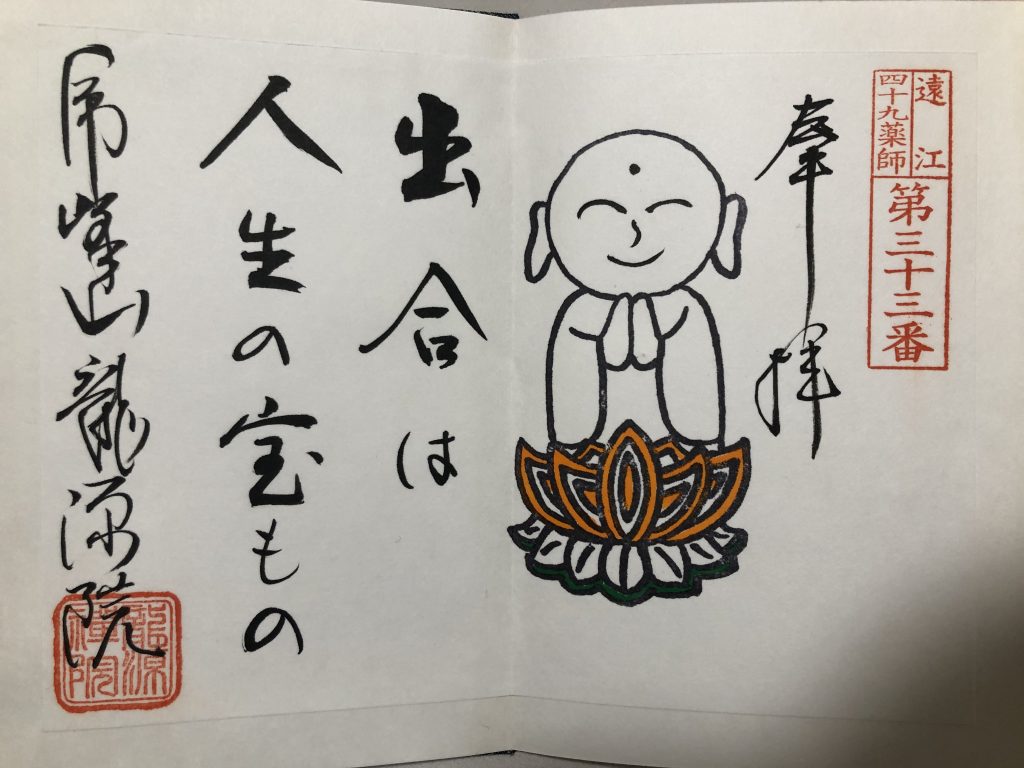 遠江
四十九薬師
第三十三番
奉拝
出合は
人生の宝もの
峰山龍源院